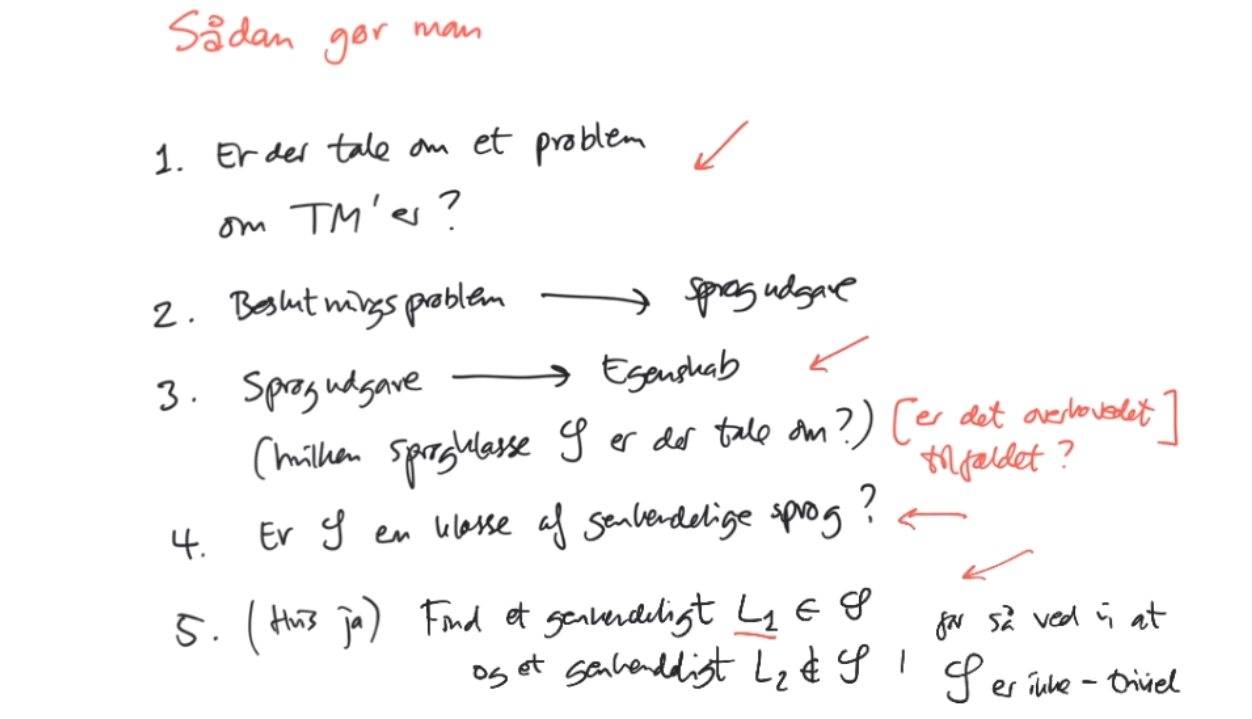 Sådan gør man
1. Er der tale om et problem
om TM'er?
2. Beslutningsproblem → sprogudgave
3. Sprogudgave → Egenskab
(hvilken sprogklasse 𝒮 er der tale om?) [er det overhovedet]
tilfældet?
4. Er 𝒮 en klasse af genkendelige sprog? ←
5. (Hvis ja) Find et genkendeligt L₁ ∈ 𝒮 for så ved vi at
og et genkendeligt L₂ ∉ 𝒮, 𝒮 er ikke-triviel